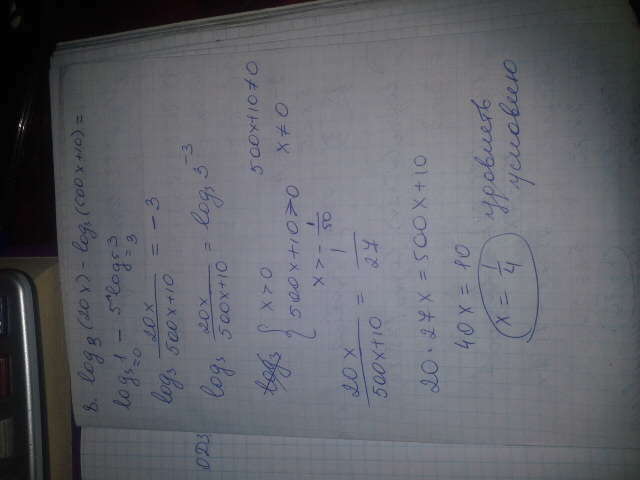 8. log₃(20x) - log₃(500x+10) =
log₅1 - 5^log₅3
=0 = 3
log₃ 20x/500x+10 = -3
log₃ 20x/500x+10 = log₃ 3⁻³
ОДЗ { x>0 500x+10≠0
500x+10>0 x≠0
x>-1/50
20x/500x+10 = 1/27
20·27x = 500x+10
40x = 10
x = 1/4 удовлеть
условию